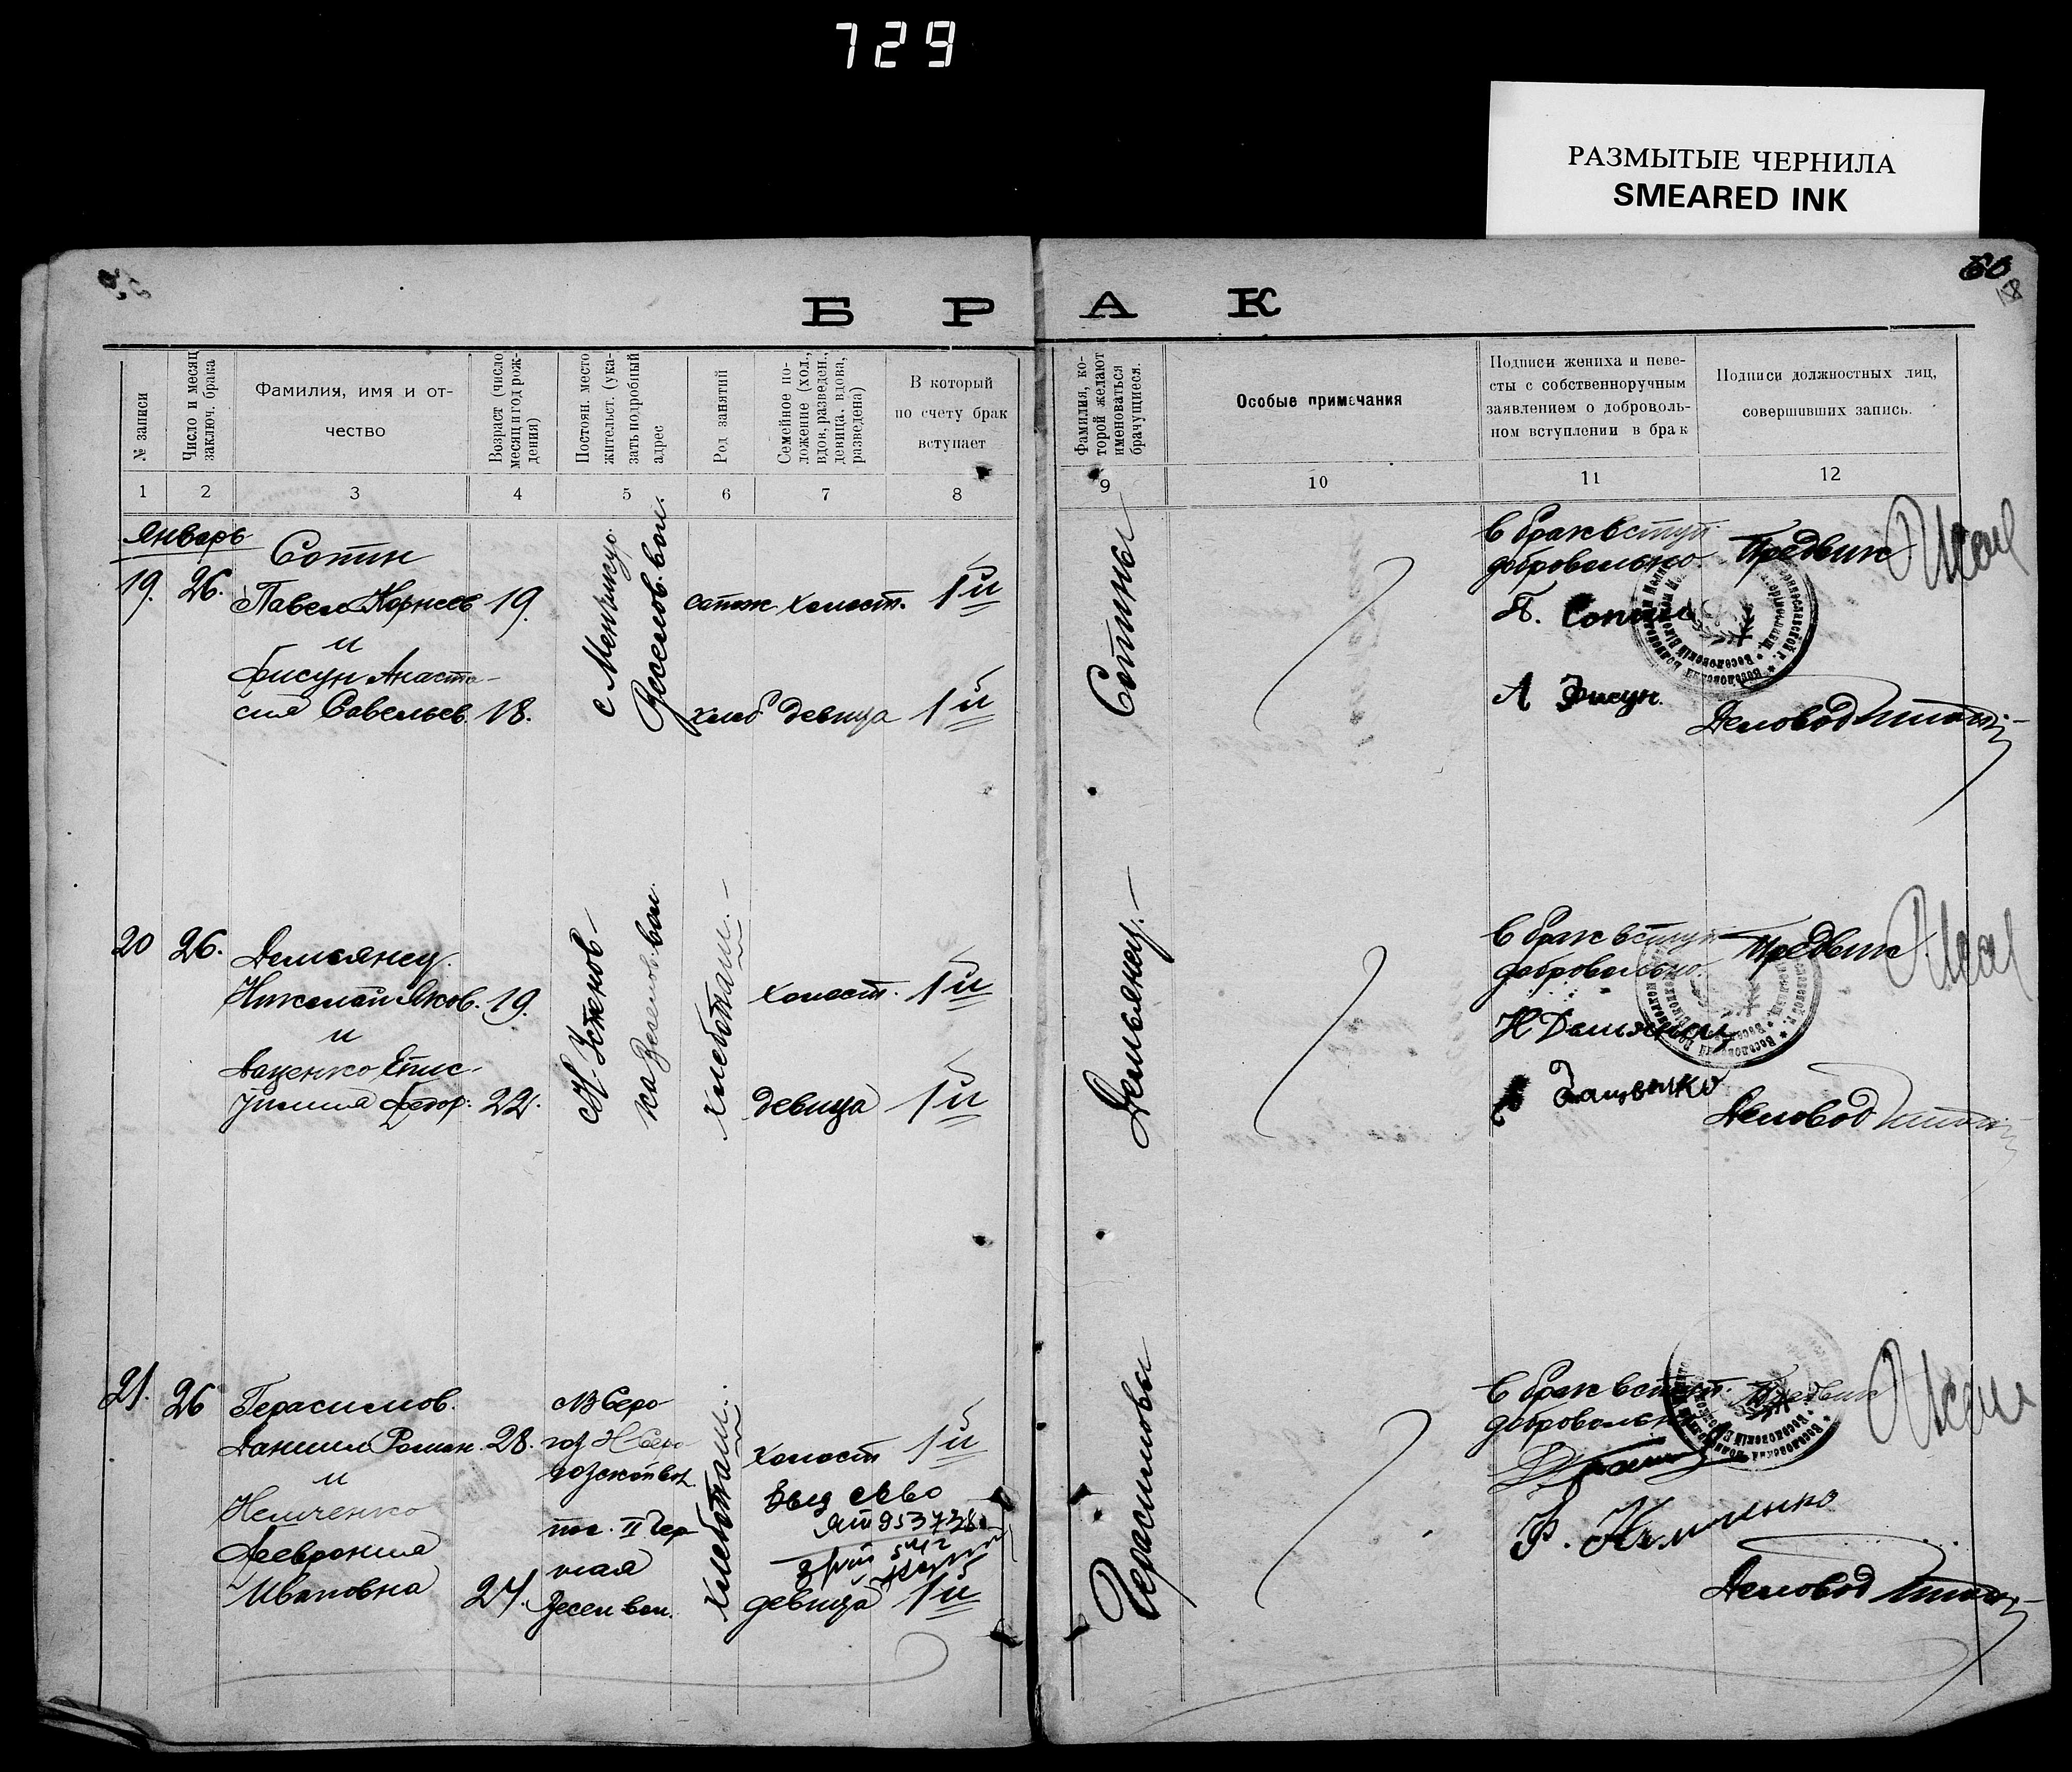 729
РАЗМЫТЫЕ ЧЕРНИЛА
SMEARED INK
60
Б Р А К
№ записи
Число и месяц
заключ. брака
Фамилия, имя и от-
чество
Возраст (число
месяц и год рож-
дения)
Постоян. место
жительст. (ука-
зать подробный
адрес
Род занятий
Семейное по-
ложение (хол.,
вдов, разведен.,
девица. вдова,
разведена)
В который
по счету брак
вступает
Фамилия, ко-
торой желают
именоваться
брачущиеся.
Особые примечания
Подписи жениха и неве-
сты с собственноручным
заявлением о доброволь-
ном вступлении в брак
Подписи должностных лиц,
совершивших запись.
1 2 3 4 5 6 7 8 9 10 11 12
январь
19. 26.
Сопин
Павел Корнеев 19.
и
Фисун Анаста-
сия Савельев. 18.
Веселов. вол.
сапож холост. 1й
хлеб девица 1й
Сопины
В брак вступ
добровольно.
П. Сопин
А Фисун.
Предвик
Деловод
20 26.
Демьянец.
Николай Яков. 19.
и
Даценко Епис-
тимия Федор. 22.
с Н. Устенов-
ка Веселов. вол.
хлебопаш.
холост. 1й
девица 1й
Демьянец.
В брак вступ
добровольно.
Н Демьянец
Даценко
Предвик
Деловод
21. 26
Герасимов.
Даниил Роман. 28.
и
Немченко
Феврония
Ивановна 24.
с В Серо-
гозской вол.
пос. II Чер
ная
Весел вол.
хлебопаш.
холост 1й
Выд св во
девица 1й
Герасимовы
В брак вступ.
добровольн
Ф. Немченко
Предвик
Деловод